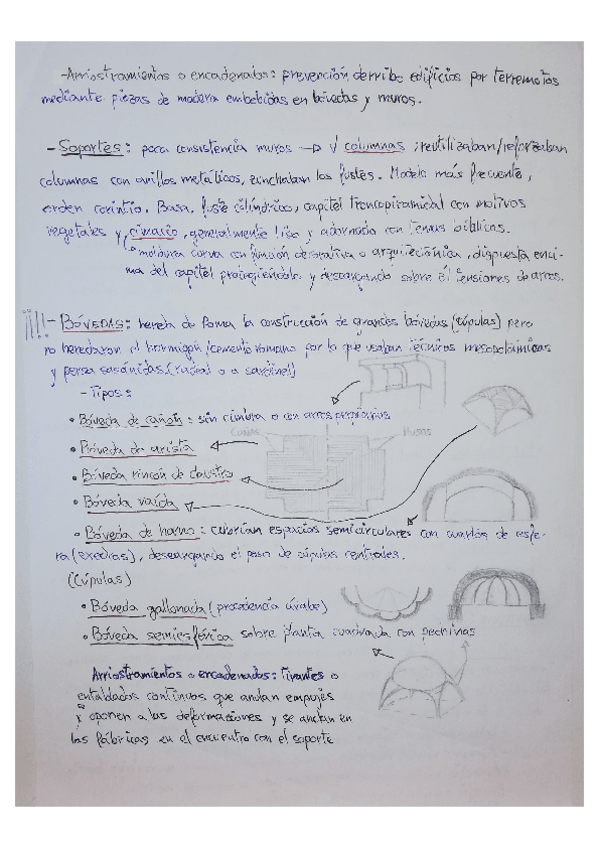 -Arriostramientos o encadenados: prevención derribo edificios por terremotos
mediante piezas de madera embebidas en bóvedas y muros.
- Soportes: poca consistencia muros → columnas; reutilizaban/reforzaban
columnas con anillos metálicos, zunchaban los fustes. Modelo más frecuente,
orden corintio. Basa, fuste cilíndrico, capitel troncopiramidal con motivos
vegetales y cimacio, generalmente liso y adornado con temas bíblicos.
moldura curva con función decorativa o arquitectónica, dispuesta enci-
ma del capitel protegiéndolo y descargando sobre él tensiones de arcos.
¡¡!! - BÓVEDAS: hereda de Roma la construcción de grandes bóvedas (cúpulas) pero
no heredaron el hormigón/cemento romano por lo que usaban técnicas mesopotámicas
y persa sasánidas (radial o a sardinel)
- Tipos:
• Bóveda de cañón: sin cimbra o con arcos
• Bóveda de arista
Cañas
Musas
• Bóveda rincón de claustro
• Bóveda vaída
• Bóveda de horno: cubrían espacios semicirculares con cuartos de esfe-
ra (exedras), descargando el peso de cúpulas centrales.
(Cúpulas)
• Bóveda gallonada (procedencia árabe)
• Bóveda semiesférica sobre planta cuadrada con pechinas
Arriostramientos o encadenados: tirantes o
entablados continuos que anulan empujes
y oponen a las deformaciones y se anclan en
las fábricas, en el encuentro con el soporte